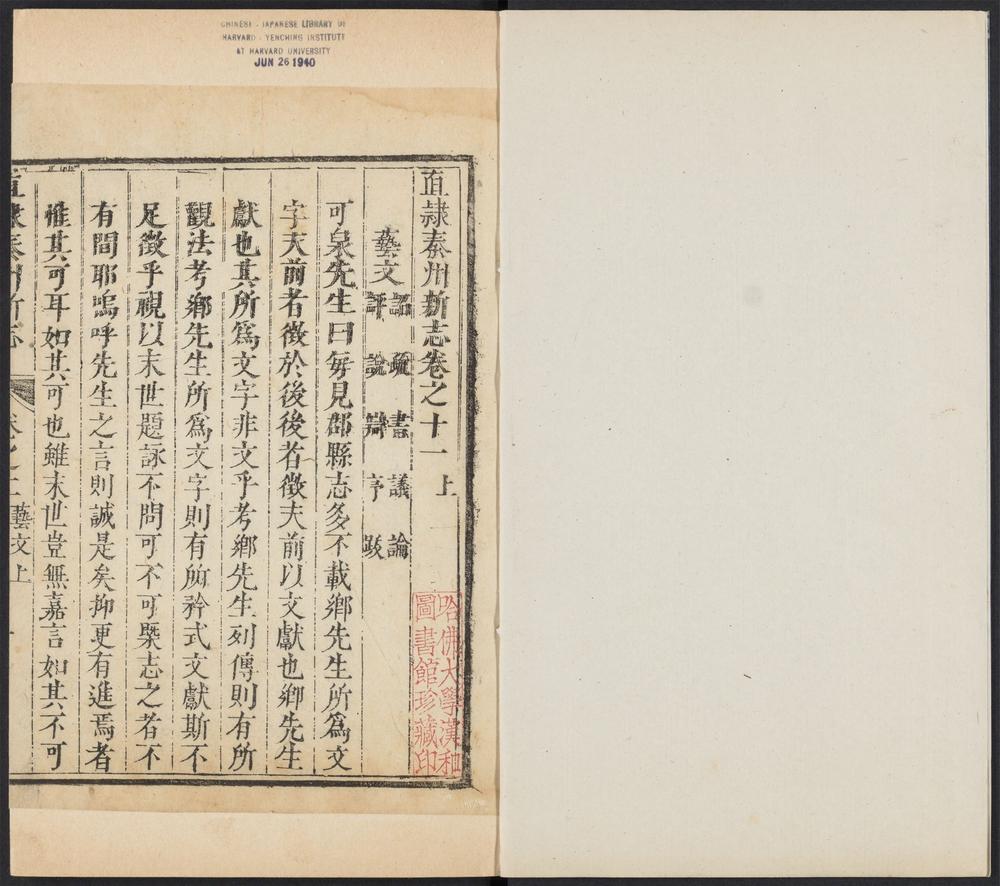 CHINESE - JAPANESE LIBRARY OF
HARVARD - YENCHING INSTITUTE
AT HARVARD UNIVERSITY
JUN 26 1940
直隸秦州新志卷之十一上
藝文
詔 疏 書 議 論
評 說 辯 序 跋
可泉先生曰每見郡縣志多不載鄉先生所爲文
字夫前者徵於後後者徵夫前以文獻也鄉先生
獻也其所爲文字非文乎考鄉先生列傳則有所
觀法考鄉先生所爲文字則有所矜式文獻斯不
足徵乎視以末世題詠不問可不可槩志之者不
有間耶嗚呼先生之言則誠是矣抑更有進焉者
惟其可耳如其可也雖末世豈無嘉言如其不可
直隸秦州新志 卷之十一 藝文上
哈佛大學漢和
圖書館珍藏印